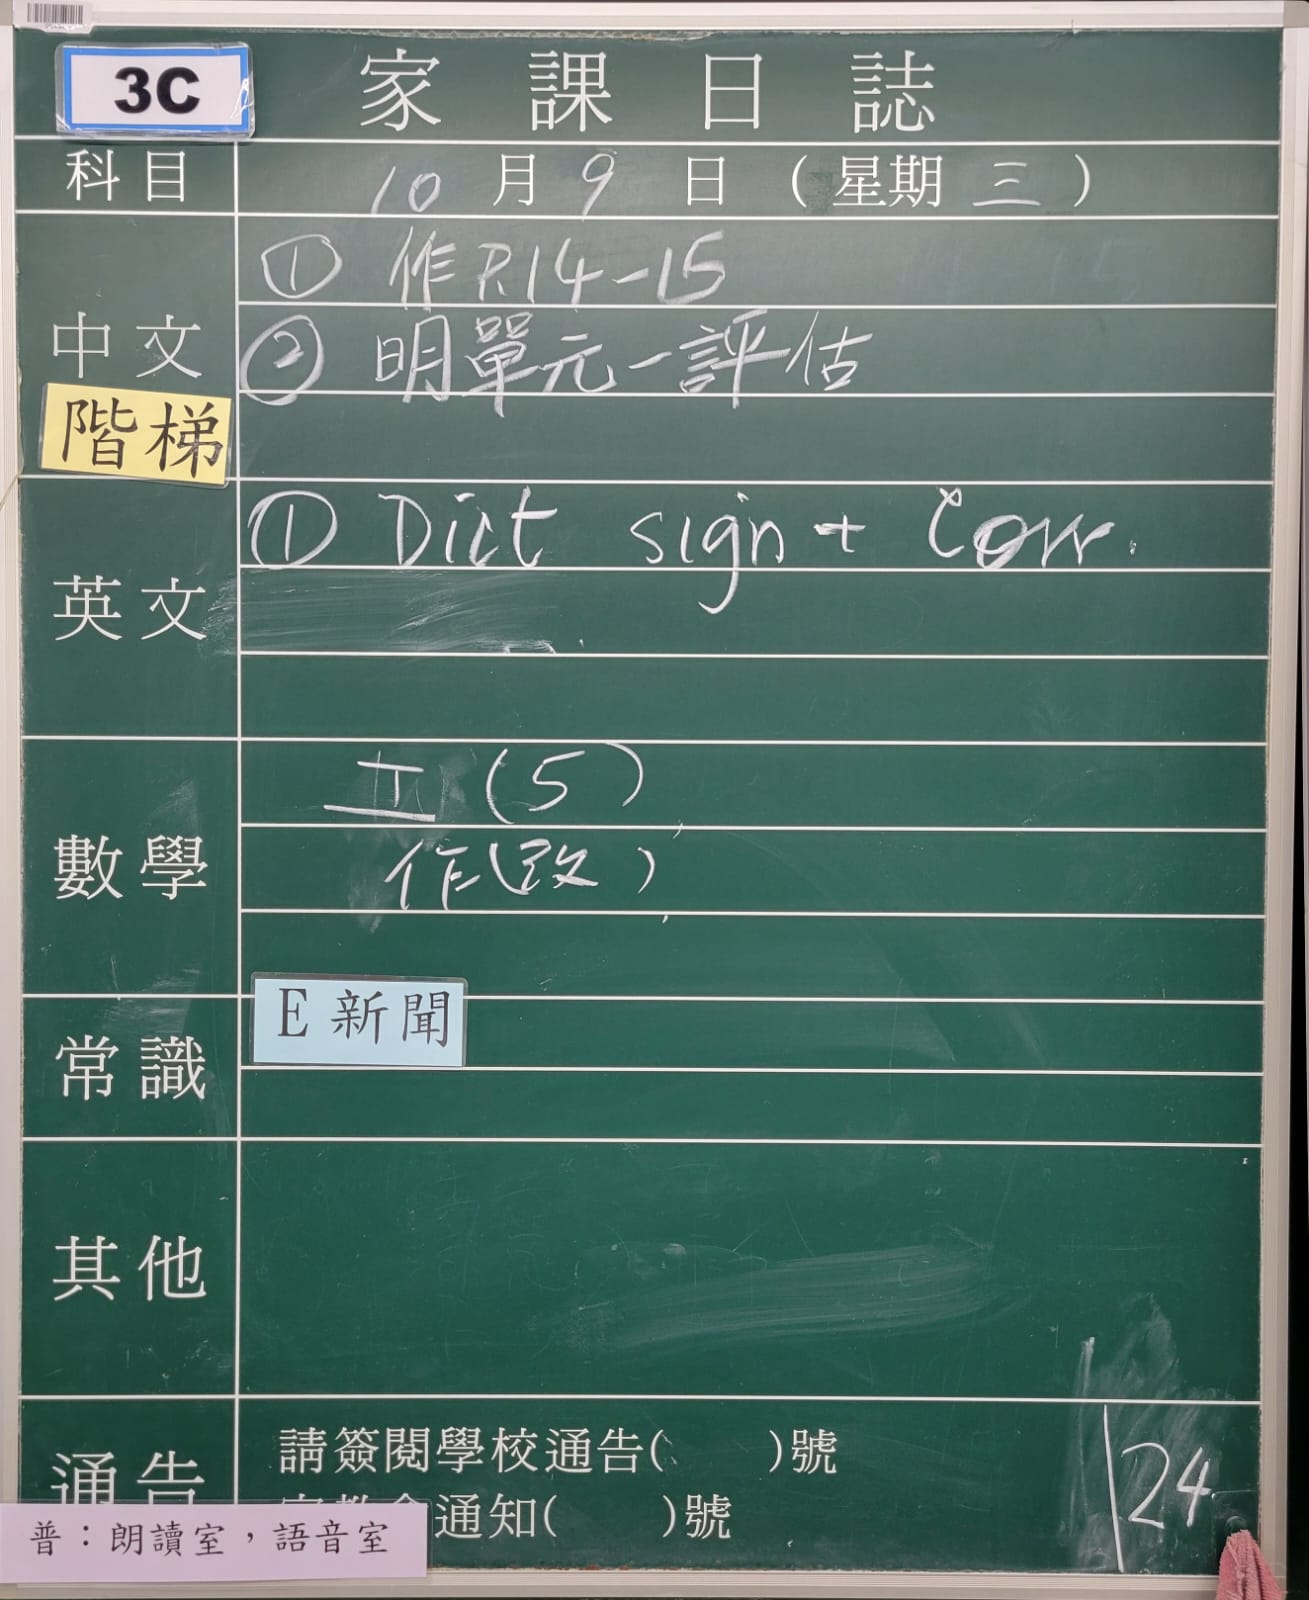 3C
家課日誌
科目 10月9日(星期三)
中文 ① 作P.14-15
② 明單元一評估
階梯
英文 ① Dict sign + Corr.
數學 II (5)
作(改)
常識 E新聞
其他
通告 請簽閱學校通告( )號
通知( )號
24
普：朗讀室，語音室